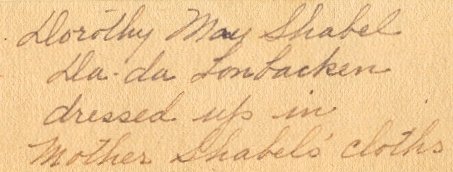 Dorothy May Shabel
Da-da Lonbacken
dressed up in
Mother Shabels' cloths